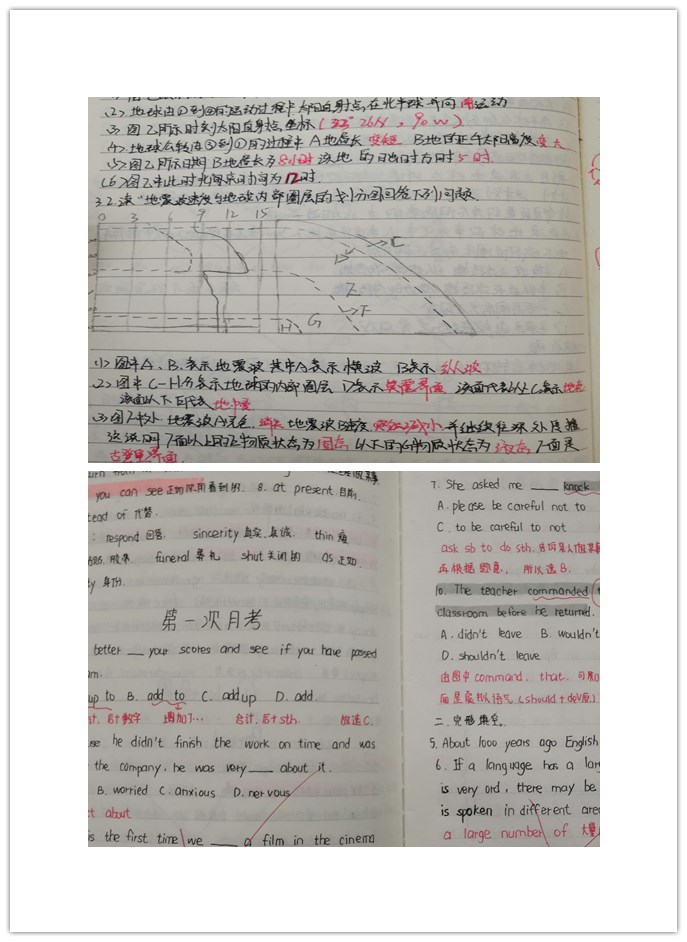 (2) 地球由①到②的运动过程中太阳直射点在北半球并向南运动
(3) 图乙所示时刻太阳直射点坐标(23°26′N, 90°W)
(4) 地球公转由③到①的过程中A地昼长变短 B地的正午太阳高度变大
(5) 图乙所示日期B地昼长为8小时 该地的日出时为时5时.
(6) 图乙中此时北京时间为12时.
32.读"地震波速度与地球内部圈层的划分图回答下列问题.
0 3 6 9 12 15
D C
Z F
H G
(1) 图中A、B.表示地震波 其中A表示横波 B表示纵波
(2) 图中C-H分表示地球的内部圈层 D表示莫霍界面 该面以上C表示地壳
该面以下E代表地中幔
(3) 图F处, 地震波A完全消失 地震波B速度突然减小
这说明F面以上的E物质状态为固态 以下的G物质状态为液态 F面是
古登堡界面.
you can see 正如你所看到的. 8. at present 目前.
tead of 代替.
: respond 回答. sincerity 真实.真诚. thin 瘦
funeral 葬礼 shut 关闭的 as 正如.
ty 身份.
第一次月考
better __ your scores and see if you have passed
am.
up to B. add to C. add up D. add.
计, 后+数字 增加了… 合计, 后+sth. 故选C.
se he didn't finish the work on time and was
the company, he was very ___ about it.
B. worried C. anxious D. nervous
t about
is the first time we ___ a film in the cinema
7. She asked me ____ knock
A. please be careful not to
C. to be careful to not
ask sb to do sth.
再根据题意, 所以选B.
10. The teacher commanded
classroom before he returned.
A. didn't leave B. wouldn't
D. shouldn't leave
由图中command, that, 可
面是虚拟语气(should+do原)
二. 完形填空.
5. About 1000 years ago English
6. If a language has a lar
is very ord, there may be
is spoken in different area
a large number of 大量